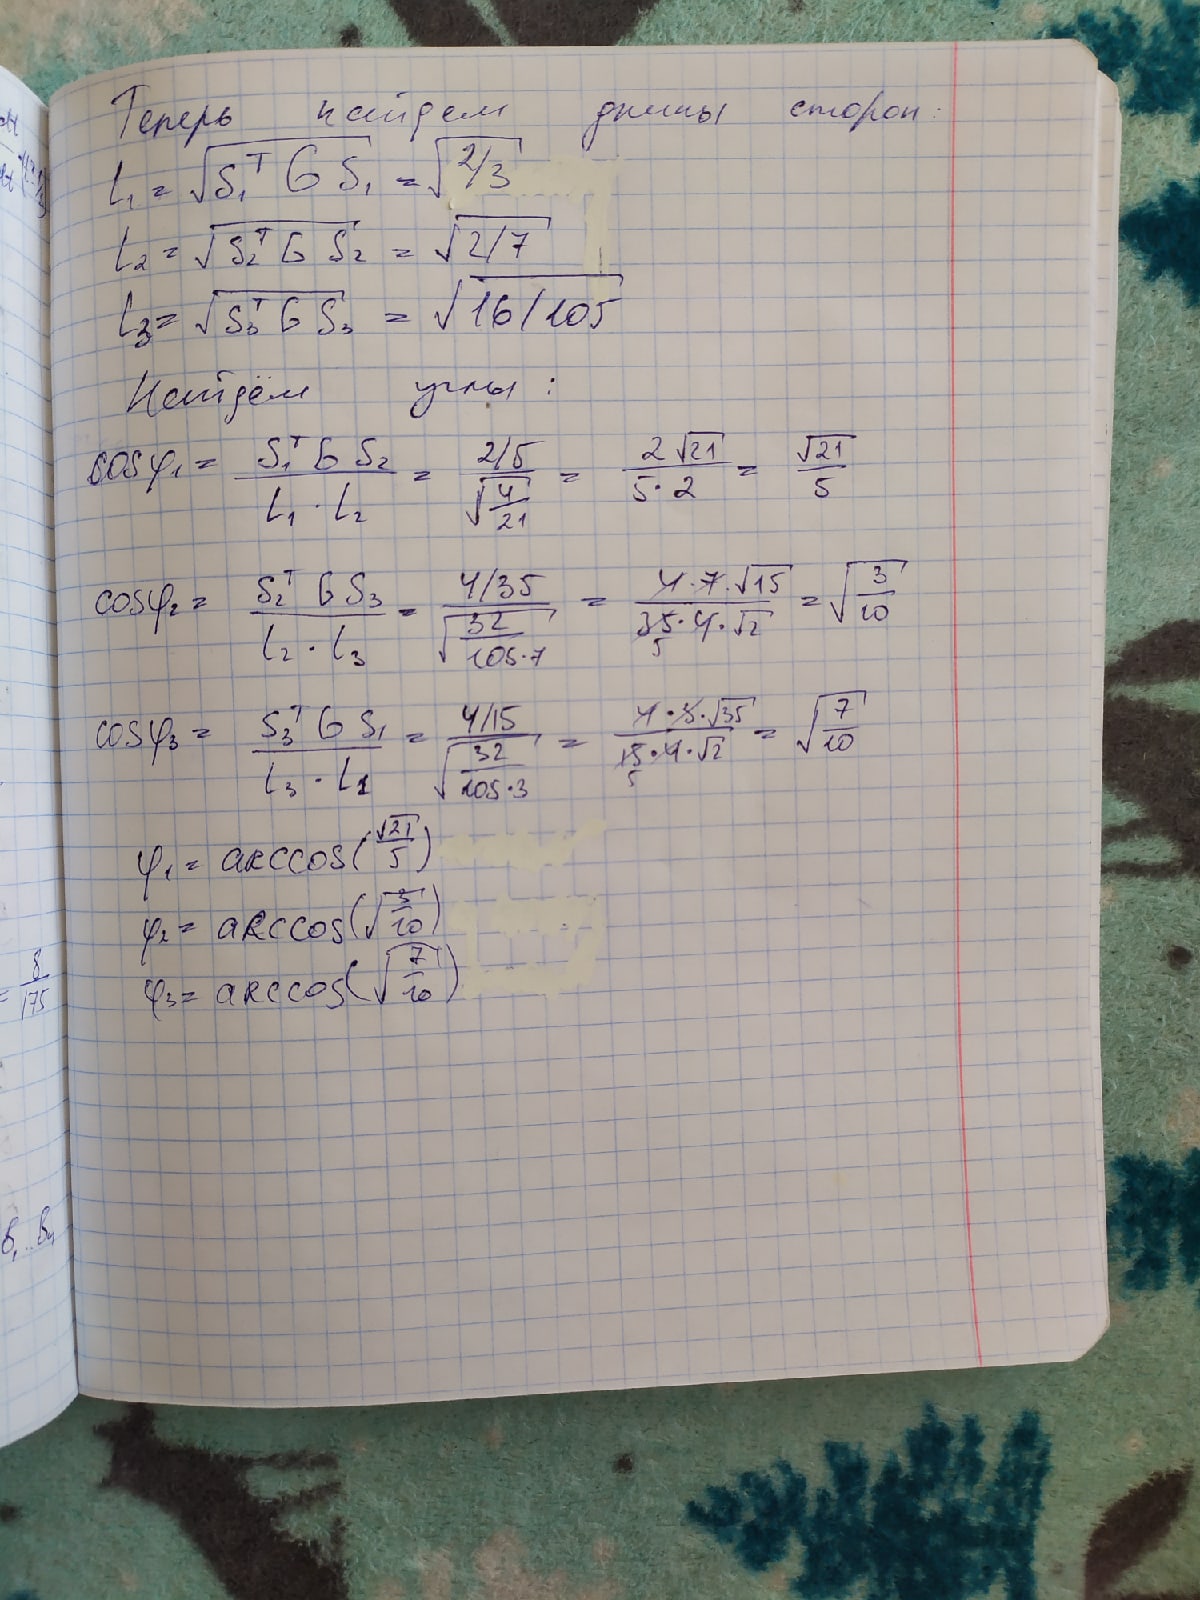 Теперь найдем длины сторон:
L₁ = √(S₁ᵀ G S₁) = √(2/3)
L₂ = √(S₂ᵀ G S₂) = √(2/7)
L₃ = √(S₃ᵀ G S₃) = √(16/105)
Найдём углы:
cosφ₁ = (S₁ᵀ G S₂)/(L₁ · L₂) = (2/5)/√(4/21) = (2√21)/(5·2) = √21/5
cosφ₂ = (S₂ᵀ G S₃)/(L₂ · L₃) = (4/35)/√(32/(105·7)) = (4·7·√15)/(35·4·√2) = √(3/10)
5
cosφ₃ = (S₃ᵀ G S₁)/(L₃ · L₁) = (4/15)/√(32/(105·3)) = (4·3·√35)/(15·4·√2) = √(7/10)
5
φ₁ = arccos(√21/5)
φ₂ = arccos(√(3/10))
φ₃ = arccos(√(7/10))
= 8/175